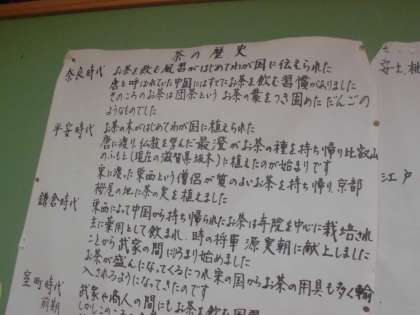 茶の歴史
奈良時代 お茶を飲む風習がはじめてわが国に伝えられた
唐と呼ばれていた中国にはすでにお茶を飲む習慣がありました
そのころのお茶は団茶という お茶の葉をつき固めただんごの
ようなものでした
平安時代 お茶の木がはじめてわが国に植えられた
唐に渡り、仏教を学んだ最澄がお茶の種を持ち帰り比叡山
のふもと(現在の滋賀県坂本)に植えたのが始まりです
宋に渡った栄西という僧侶が質のよいお茶を持ち帰り、京都
栂尾の地に茶の実を植えました
鎌倉時代 栄西によって中国から持ち帰られたお茶は寺院を中心に栽培され
主に薬用として飲まれ、時の将軍 源実朝に献上しました
ことから武家の間に広まり始めました
お茶が盛んになってくるにつれ宋の国からお茶の用具も多く輸
入されるようになってきたのです
室町時代 武家や商人の間にもお茶を飲む
前期 しかしこのころ
安土
江戸